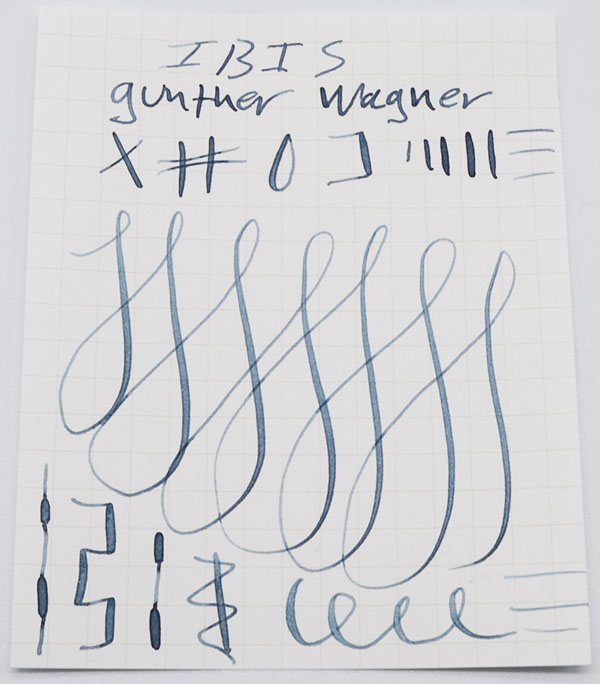 IBIS
gunther wagner
X # 0